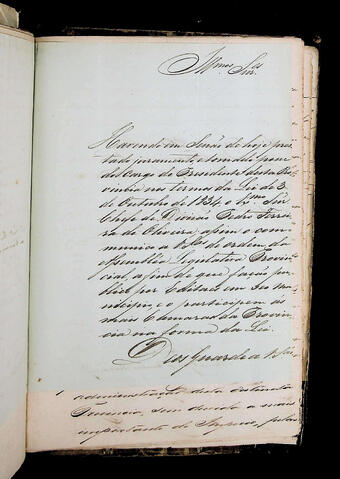 Illmos Snrs
Havendo em Sessão de hoje pres-
tado juramento e tomado posse
do Cargo de Presidente desta Pro-
vincia nos termos da Lei de 3
de Outubro de 1834, o Sñr
Chefe de Pedro Ferrei-
ra de Oliveira, assim o com-
munico a VSas de ordem da
Assemblea Legislativa Provin-
cial, a fim de que fação pu-
blico por Editaes em seo Mu-
nicipio, e o participem ás
mais Camaras da Provin-
cia na forma da Lei.
Deos Guarde a VSas
administração desta
Provincia, sem duvida a mais
importante do Imperio, pela